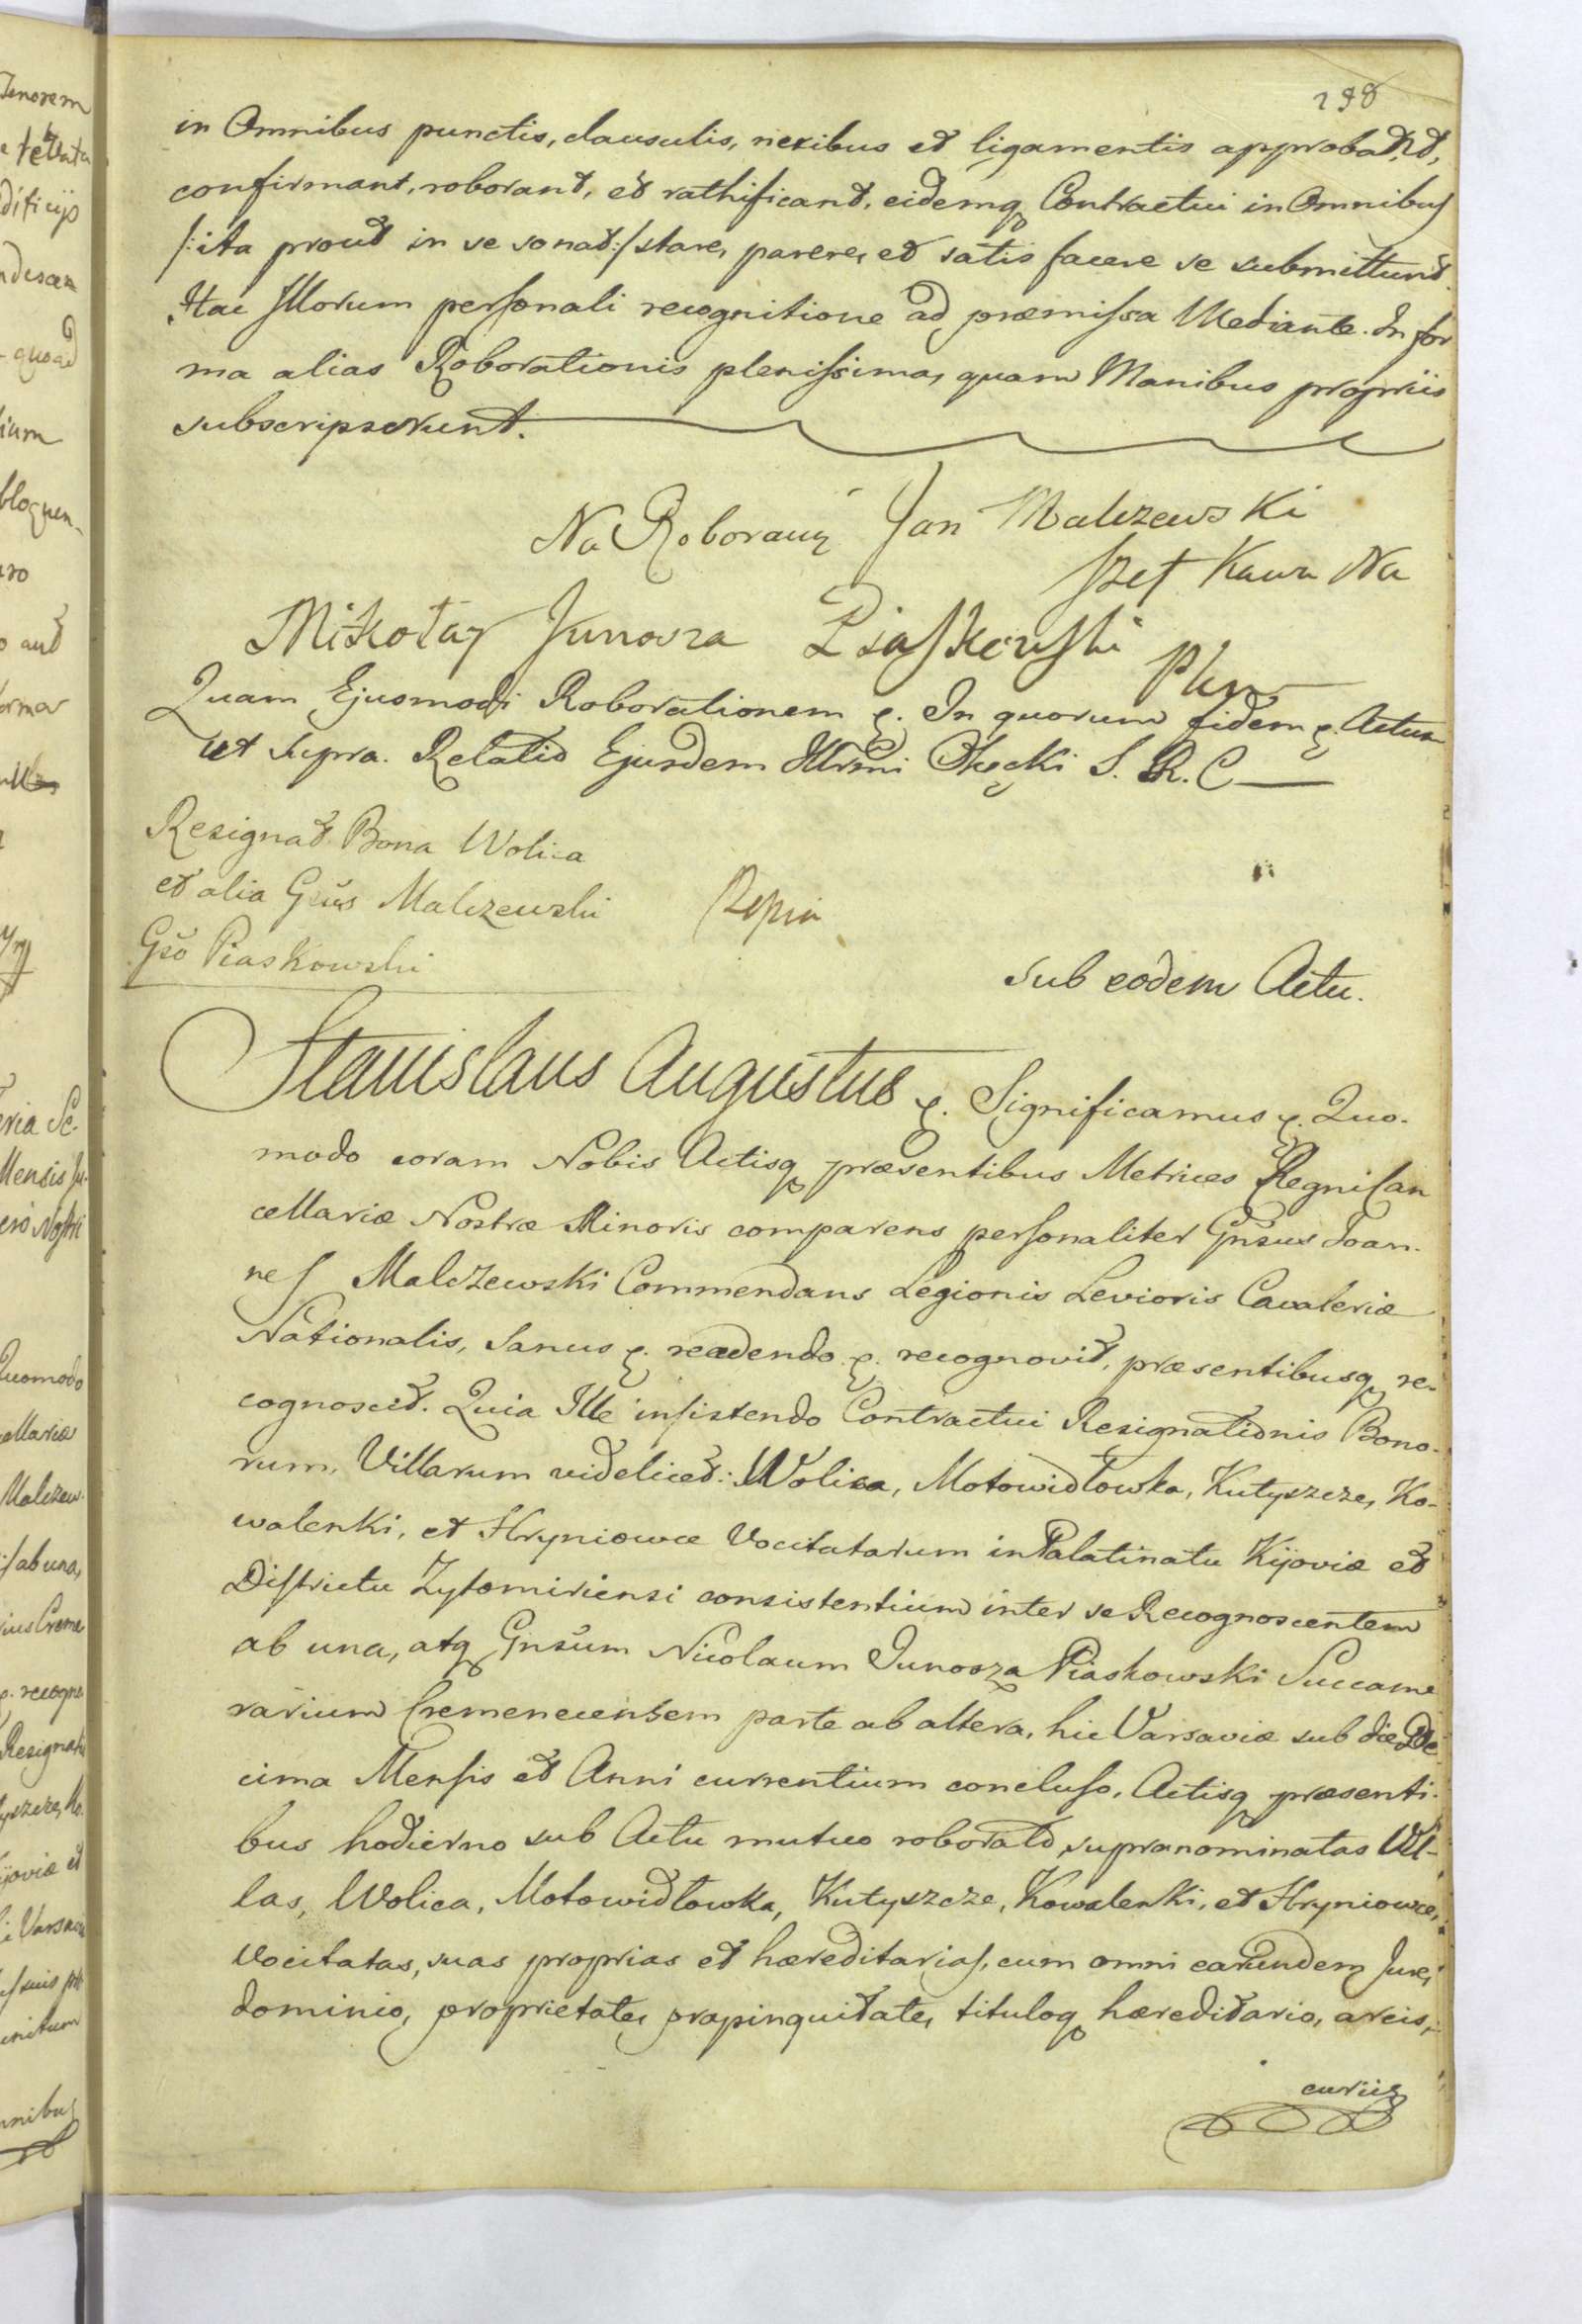 198
in Omnibus punctis, clausulis, nexibus et ligamentis approbant,
confirmant, roborant, et rathificant, eidemq Contractui in Omnibus
/:ita prout in se sonat:/ stare, parere, et satis facere se submittunt.
Hac Illorum personali recognitione ad præmissa Mediante. In for
ma alias Roborationis plenissima, quam Manibus propriis
subscripserunt.
Na Roboracyą Jan Malczewski
Szef Kawa Na
Mikołay Junosza Piaskowski
PKrz
Quam Ejusmodi Roborationem ę. In quorum fidem ę. Actum
ut supra. Relatio Ejusdem Illrmi Okęcki S. R. C
Resignat Bona Wolica
et alia Gsus Malczewski
Gso Piaskowski
sub eodem Actu.
Stanislaus Augustus ę. Significamus ę. Quo-
modo coram Nobis Actisq præsentibus Metrices Regni Can
cellariæ Nostræ Minoris comparens personaliter Gnsus Joan-
nes Malczewski Commendans Legionis Levioris Cavaleriæ
Nationalis, Sanus ę. recedendo ę. recognovit, præsentibusq re-
cognoscit. Quia Ille insistendo Contractui Resignationis Bono-
rum, Villarum videlicet: Wolica, Motowidłowka, Kutyszcze, Ko-
walenki, et Hryniowce Vocitatarum in Palatinatu Kijoviæ et
Districtu Zytomiriensi consistentium inter se Recognoscentem
ab una, atq Gnsum Nicolaum Junosza Piaskowski Succame
rarium Cremenecensem parte ab altera, hic Varsaviæ sub die De
cima Mensis et Anni currentium concluso, Actisq præsenti-
bus hodierno sub Actu mutuo roborato, supranominatas Vil-
las, Wolica, Motowidłowka, Kutyszcze, Kowalenki, et Hryniowce,
Vocitatas, suas proprias et hæreditarias, cum omni earundem Jure,
dominio, proprietate, propinquitate, tituloq hæreditario, areis,
curiis